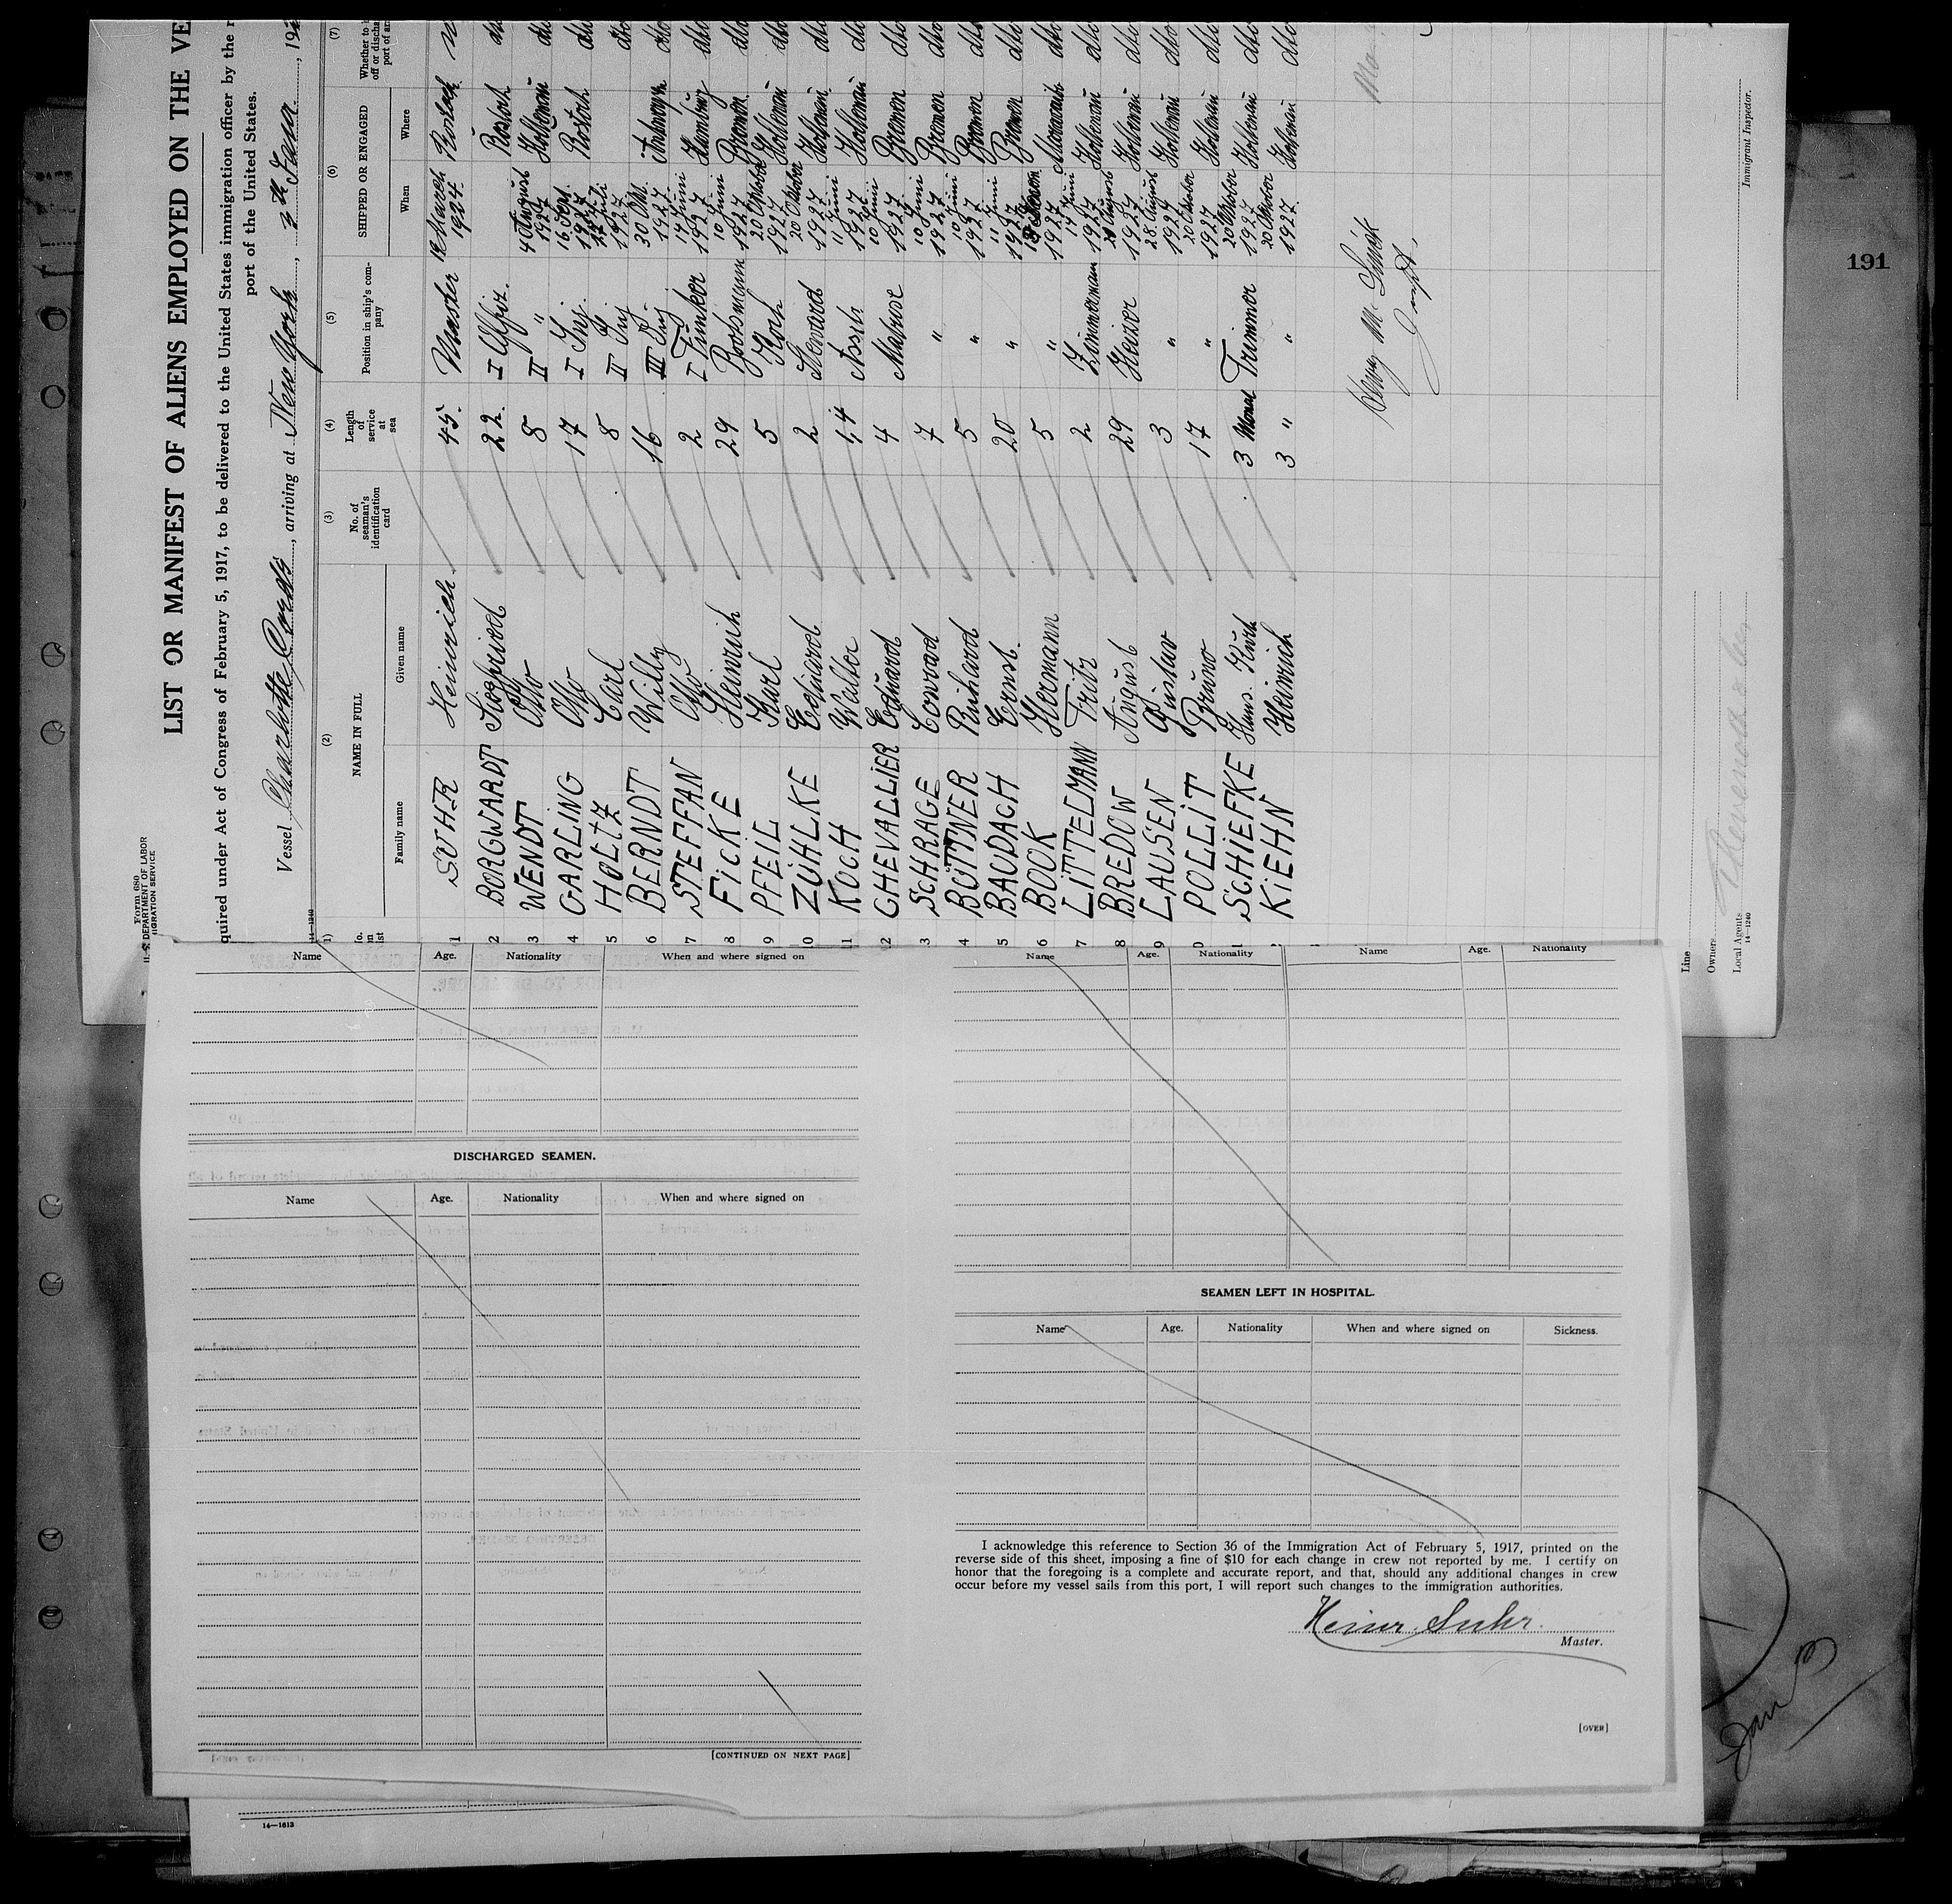 Form 680
U. S. DEPARTMENT OF LABOR
IMMIGRATION SERVICE
LIST OR MANIFEST OF ALIENS EMPLOYED ON THE VE
quired under Act of Congress of February 5, 1917, to be delivered to the United States immigration officer by the r
port of the United States.
Vessel Charlotte Cords, arriving at New York, 3th Jan., 192
14-1240
(2) (3) (4) (5) (6) (7)
NAME IN FULL
Family name Given name
No. of seaman's identification card
Length of service at sea
Position in ship's company
SHIPPED OR ENGAGED
When Where
Whether to b
off or discha
port of ar
1 SUHR Heinrich 45 Master 12 March 1924 Rostock
2 BORGWARDT Siegfried 22 I Offiz. Rostock
3 WENDT Otto 8 II " 4 August 1927 Holtenau
4 GARLING Otto 17 I Ing. 16 Sept. 1927 Rostock
5 HOLTZ Carl 8 II Ing 1927
6 BERNDT Willy 16 III Ing 30 Okt. 1927 Antwerpen dto
7 STEFFAN Otto 2 I Funker 14 Juni 1927 Hamburg dto
8 FiCKE Heinrich 29 Bootsmann 10 Juni 1927 Bremen dto
9 PFEIL Karl 5 Koch 20 Oktober 1927 Holtenau dto
10 ZÜHLKE Eduard 2 Steward 20 Oktober 1927 Holtenau dto
11 KOCH Walter 1/4 Assist 11 Juni 1927 Holtenau dto
12 CHEVALLIER Eduard 4 Matrose 10 Juni 1927 Bremen dto
3 SCHRAGE Conrad 7 " 10 Juni 1927 Bremen dto
4 BÜTTNER Reinhard 5 " 10 Juni 1927 Bremen dto
5 BAUDACH Ernst. 20 " 11 Juni 1927 Bremen dto
6 BOOK Hermann 5 " 1927 dto
7 LiTTELMANN Fritz 2 Zimmermann 14 Juni 1927 Holtenau dto
8 BREDOW August 29 Heizer August 1927 Holtenau dto
9 CLAUSEN Gustav 3 " 28 August 1927 Holtenau dto
0 POLLiT Bruno 17 " 20 Oktober 1927 Holtenau dto
1 SCHiEFKE Hans. Kurt 3 Monat Trimmer 20 Oktober 1927 Holtenau dto
KiEHN Heinrich 3 " " 20 Oktober 1927. Holtenau dto
Immigrant Inspector.
Line
Owners
Local Agents
14-1240
191
Name Age. Nationality When and where signed on
DISCHARGED SEAMEN.
Name Age. Nationality When and where signed on
[CONTINUED ON NEXT PAGE]
14—1613
Name Age. Nationality Name Age. Nationality
SEAMEN LEFT IN HOSPITAL.
Name Age. Nationality When and where signed on Sickness.
I acknowledge this reference to Section 36 of the Immigration Act of February 5, 1917, printed on the
reverse side of this sheet, imposing a fine of $10 for each change in crew not reported by me. I certify on
honor that the foregoing is a complete and accurate report, and that, should any additional changes in crew
occur before my vessel sails from this port, I will report such changes to the immigration authorities.
Heinr. Suhr.
Master.
[OVER]
Jan 3